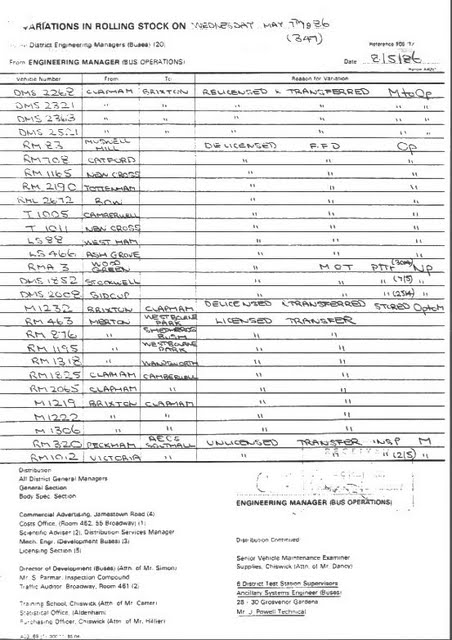 VARIATIONS IN ROLLING STOCK ON WEDNESDAY MAY 7 1986
(347)
District Engineering Managers (Buses) (20)
Reference
From ENGINEERING MANAGER (BUS OPERATIONS)
Date 8/5/86
Vehicle Number From To Reason for Variation
DMS 2268 CLAPHAM BRIXTON RELICENSED & TRANSFERRED M to Op
DMS 2321 " " " " "
DMS 2363 " " " " "
DMS 2521 " " " " "
RM 83 MUSWELL HILL DELICENSED F.F.D Op
RM 708 CATFORD " " "
RM 1165 NEW CROSS " " "
RM 2190 TOTTENHAM " " "
RML 2672 BOW " " "
T 1005 CAMBERWELL " " "
T 1011 NEW CROSS " " "
LS 88 WEST HAM " " "
LS 466 ASH GROVE " " "
RMA 3 WOOD GREEN " MOT PTT (30/4) NP
DMS 1852 STOCKWELL " " " (7/5) "
DMS 2008 SIDCUP " " " (25/4) "
M 1232 BRIXTON CLAPHAM DELICENSED & TRANSFERRED STORED Op to M
RM 463 MERTON WESTBOURNE PARK LICENSED TRANSFER
RM 876 " SHEPHERDS BUSH " "
RM 1195 " WESTBOURNE PARK " "
RM 1318 " WANDSWORTH " "
RM 1825 CLAPHAM CAMBERWELL " "
RM 2065 CLAPHAM " " "
M 1219 BRIXTON CLAPHAM " "
M 1222 " " " "
M 1306 " " " "
RM 320 PECKHAM AECS SOUTHALL UNLICENSED TRANSFER INSP M
RM 1012 VICTORIA " " " " (2/5) "
Distribution
All District General Managers
General Section
Body Spec. Section
ENGINEERING MANAGER (BUS OPERATIONS)
Commercial Advertising, Jamestown Road (4)
Costs Office, (Room 462, 55 Broadway) (1)
Scientific Adviser (2), Distribution Services Manager
Mech. Engr. (Development Buses) (3)
Licensing Section (5)
Distribution Continued
Senior Vehicle Maintenance Examiner
Supplies, Chiswick (Attn. of Mr. Dancy)
Director of Development (Buses) (Attn. of Mr. Simon)
Mr. S. Parmar, Inspection Compound
Traffic Auditor, Broadway, Room 461 (2)
6 District Test Station Supervisors
Ancillary Systems Engineer (Buses)
28 - 30 Grosvenor Gardens
Mr. J. Powell Technical
Training School, Chiswick (Attn of Mr. Carter)
Statistical Office, (Aldenham)
Purchasing Officer, Chiswick (Attn. of Mr. Hillier)